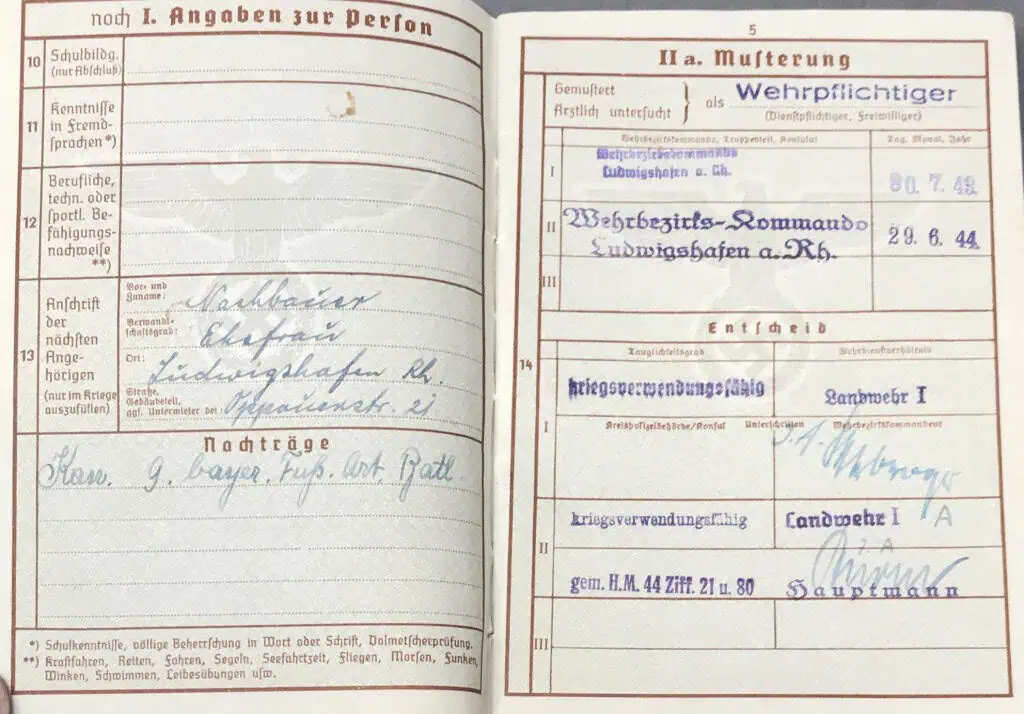 noch I. Angaben zur Person
10
Schulbildg.
(nur Abschluß)
11
Kenntnisse
in Fremd-
sprachen *)
12
Berufliche,
techn. oder
sportl. Be-
fähigungs-
nachweise
**)
13
Anschrift
der
nächsten
Ange-
hörigen
(nur im Kriege
auszufüllen)
Vor- und
Zuname:
Nachbauer
Verwandt-
schaftsgrad:
Ehefrau
Ort:
Ludwigshafen Rh.
Straße,
Gebäudeteil,
ggf. Untermieter bei:
Oppauerstr. 21
Nachträge
Kan. 9. bayer. Fuß. Art. Batl.
*) Schulkenntnisse, völlige Beherrschung in Wort oder Schrift, Dolmetscherprüfung.
**) Kraftfahren, Reiten, Fahren, Segeln, Seefahrtzeit, Fliegen, Morsen, Funken,
Winken, Schwimmen, Leibesübungen usw.
5
IIa. Musterung
Gemustert
Ärztlich untersucht
} als Wehrpflichtiger
(Dienstpflichtiger, Freiwilliger)
Wehrbezirkskommando, Truppenteil, Konsulat
Tag, Monat, Jahr
I
Wehrbezirkskommando
Ludwigshafen a. Rh.
30. 7. 43.
II
Wehrbezirks-Kommando
Ludwigshafen a. Rh.
29. 6. 44.
III
Entscheid
14
Tauglichkeitsgrad
Wehrdienstverhältnis
I
kriegsverwendungsfähig
Landwehr I
Kreispolizeibehörde/Konsul
Unterschriften
Wehrbezirkskommandeur
II
kriegsverwendungsfähig
Landwehr I A
gem. H.M. 44 Ziff. 21 u. 80
Hauptmann
III